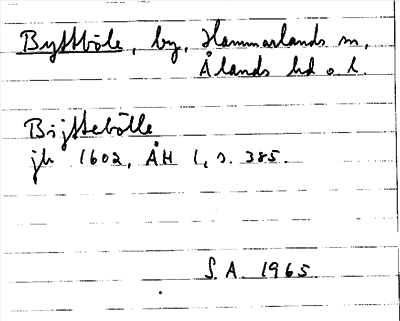 Byttböle, by, Hammarlands sn,
Ålands hd o. l.
Bijttebölle
jb 1602, ÅH 1, s. 385.
S. A. 1965